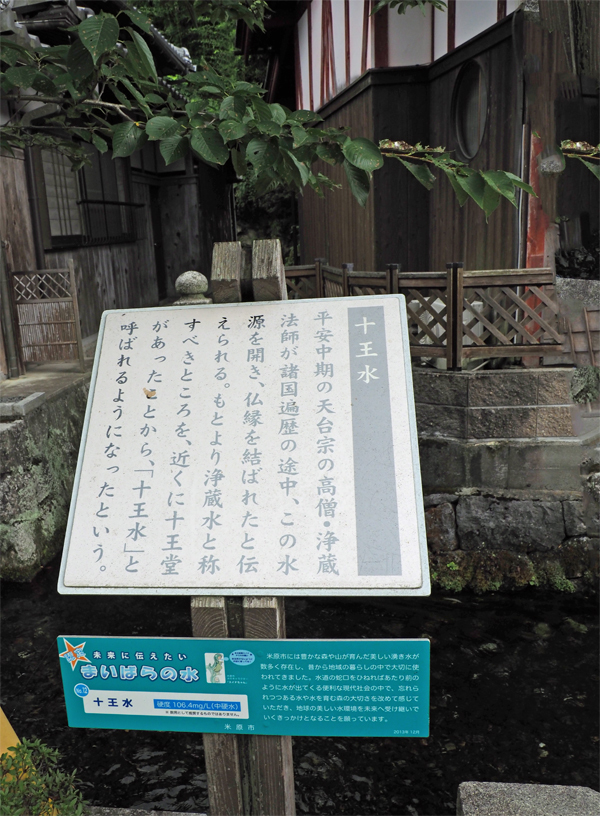 十王水
平安中期の天台宗の高僧・浄蔵
法師が諸国遍歴の途中、この水
源を開き、仏縁を結ばれたと伝
えられる。もとより浄蔵水と称
すべきところを、近くに十王堂
があったことから、「十王水」と
呼ばれるようになったという。
未来に伝えたい
まいばらの水
No.12
十王水
硬度 106.4mg/L(中硬水)
米原市
米原市には豊かな森や山が育んだ美しい湧き水が
数多く存在し、昔から地域の暮らしの中で大切に使
われてきました。水道の蛇口をひねればあたり前の
ように水が出てくる便利な現代社会の中で、忘れら
れつつある水や水を育む森の大切さを改めて感じて
いただき、地球の美しい水環境を未来へ受け継いで
いくきっかけとなることを願っています。
2013年12月